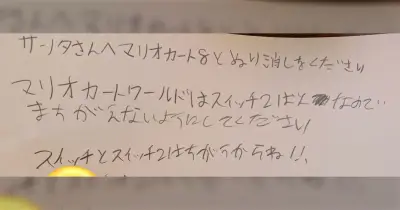 サンタさんへマリオカート8とぬり消しをください
マリオカートワールドはスイッチ2ばんなので
まちがえないようにしてください
スイッチとスイッチ2はちがうからね!!